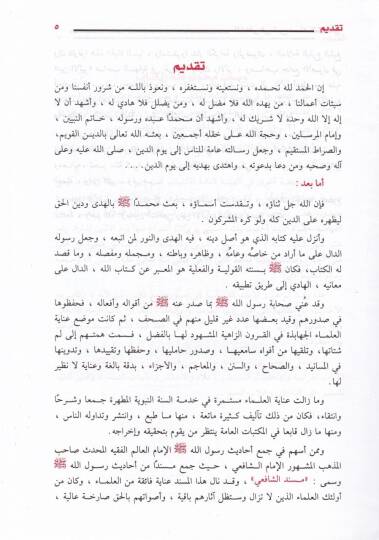 تقديم ٥
تقديم
إن الحمد لله نحمده ، ونستعينه ونستغفره ، ونعوذ بالله من شرور أنفسنا ومن
سيئات أعمالنا ، من يهده الله فلا مضل له ، ومن يضلل فلا هادي له ، وأشهد أن لا
إله إلا الله وحده لا شريك له ، وأشهد أن محمدًا عبده ورسوله ، خاتم النبيين ،
وإمام المرسلين ، وحجة الله على خلقه أجمعين ، بعثه الله تعالى بالدين القويم،
والصراط المستقيم ، وجعل رسالته عامة للناس إلى يوم الدين ، صلى الله عليه وعلى
آله وصحبه ومن دعا بدعوته ، واهتدى بهديه إلى يوم الدين....
أما بعد :
فإن الله جل ثناؤه ، وتقدست أسماؤه ، بعث محمدًا ﷺ بالهدى ودين الحق
ليظهره على الدين كله ولو كره المشركون .
وأنزل عليه كتابه الذي هو أصل دينه ، فيه الهدى والنور لمن اتبعه ، وجعل رسوله
الدال على ما أراد من خاصه وعامه ، وظاهره وباطنه ، ومجمله ومفصله ، وما قصد
له الكتاب، فكان ﷺ بسنته القولية والفعلية هو المعبر عن كتاب الله ، الدال على
معانيه ، الهادي إلى طريق تطبيقه .
وقد عُني صحابة رسول الله ﷺ بما صدر عنه من أقواله وأفعاله ، فحفظوها
في صدورهم وقيد بعضها عدد غير قليل منهم في الصحف ، ثم كانت موضع عناية
العلماء الجهابذة في القرون الزاهية المشهود لها بالفضل ، فسمت هممهم إلى لم
شتاتها، وتلقيها من أفواه سامعيها ، وصدور حامليها ، وحفظها وتقييدها ، وتدوينها
في المسانيد ، والصحاح ، والسنن ، والمعاجم ، والأجزاء ، بدقة بالغة وعناية لا نظير
لها .
وما زالت عناية العلماء مستمرة في خدمة السنة النبوية المطهرة جمعا وشرحًا
وانتقاء، فكان من ذلك تآليف كثيرة ماتعة ، منها ما طبع ، وانتشر وتداوله الناس ،
ومنها ما زال قابعا في المكتبات العامة ينتظر من يقوم بتحقيقه وإخراجه.
وممن أسهم في جمع أحاديث رسول الله ﷺ الإمام العالم الفقيه المحدث صاحب
المذهب المشهور الإمام الشافعي ، حيث جمع مسندًا من أحاديث رسول الله ﷺ
وسمي : «مسند الشافعي» ، وقد نال هذا المسند عناية فائقة من العلماء ، وكان من
أولئك العلماء الذين لا تزال وستظل آثارهم باقية ، وأصواتهم بالحق صارخة عالية ،